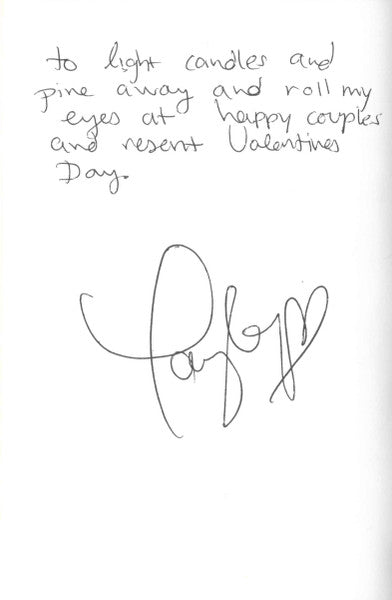 to light candles and
pine away and roll my
eyes at happy couples
and resent Valentines
Day.
Taylor